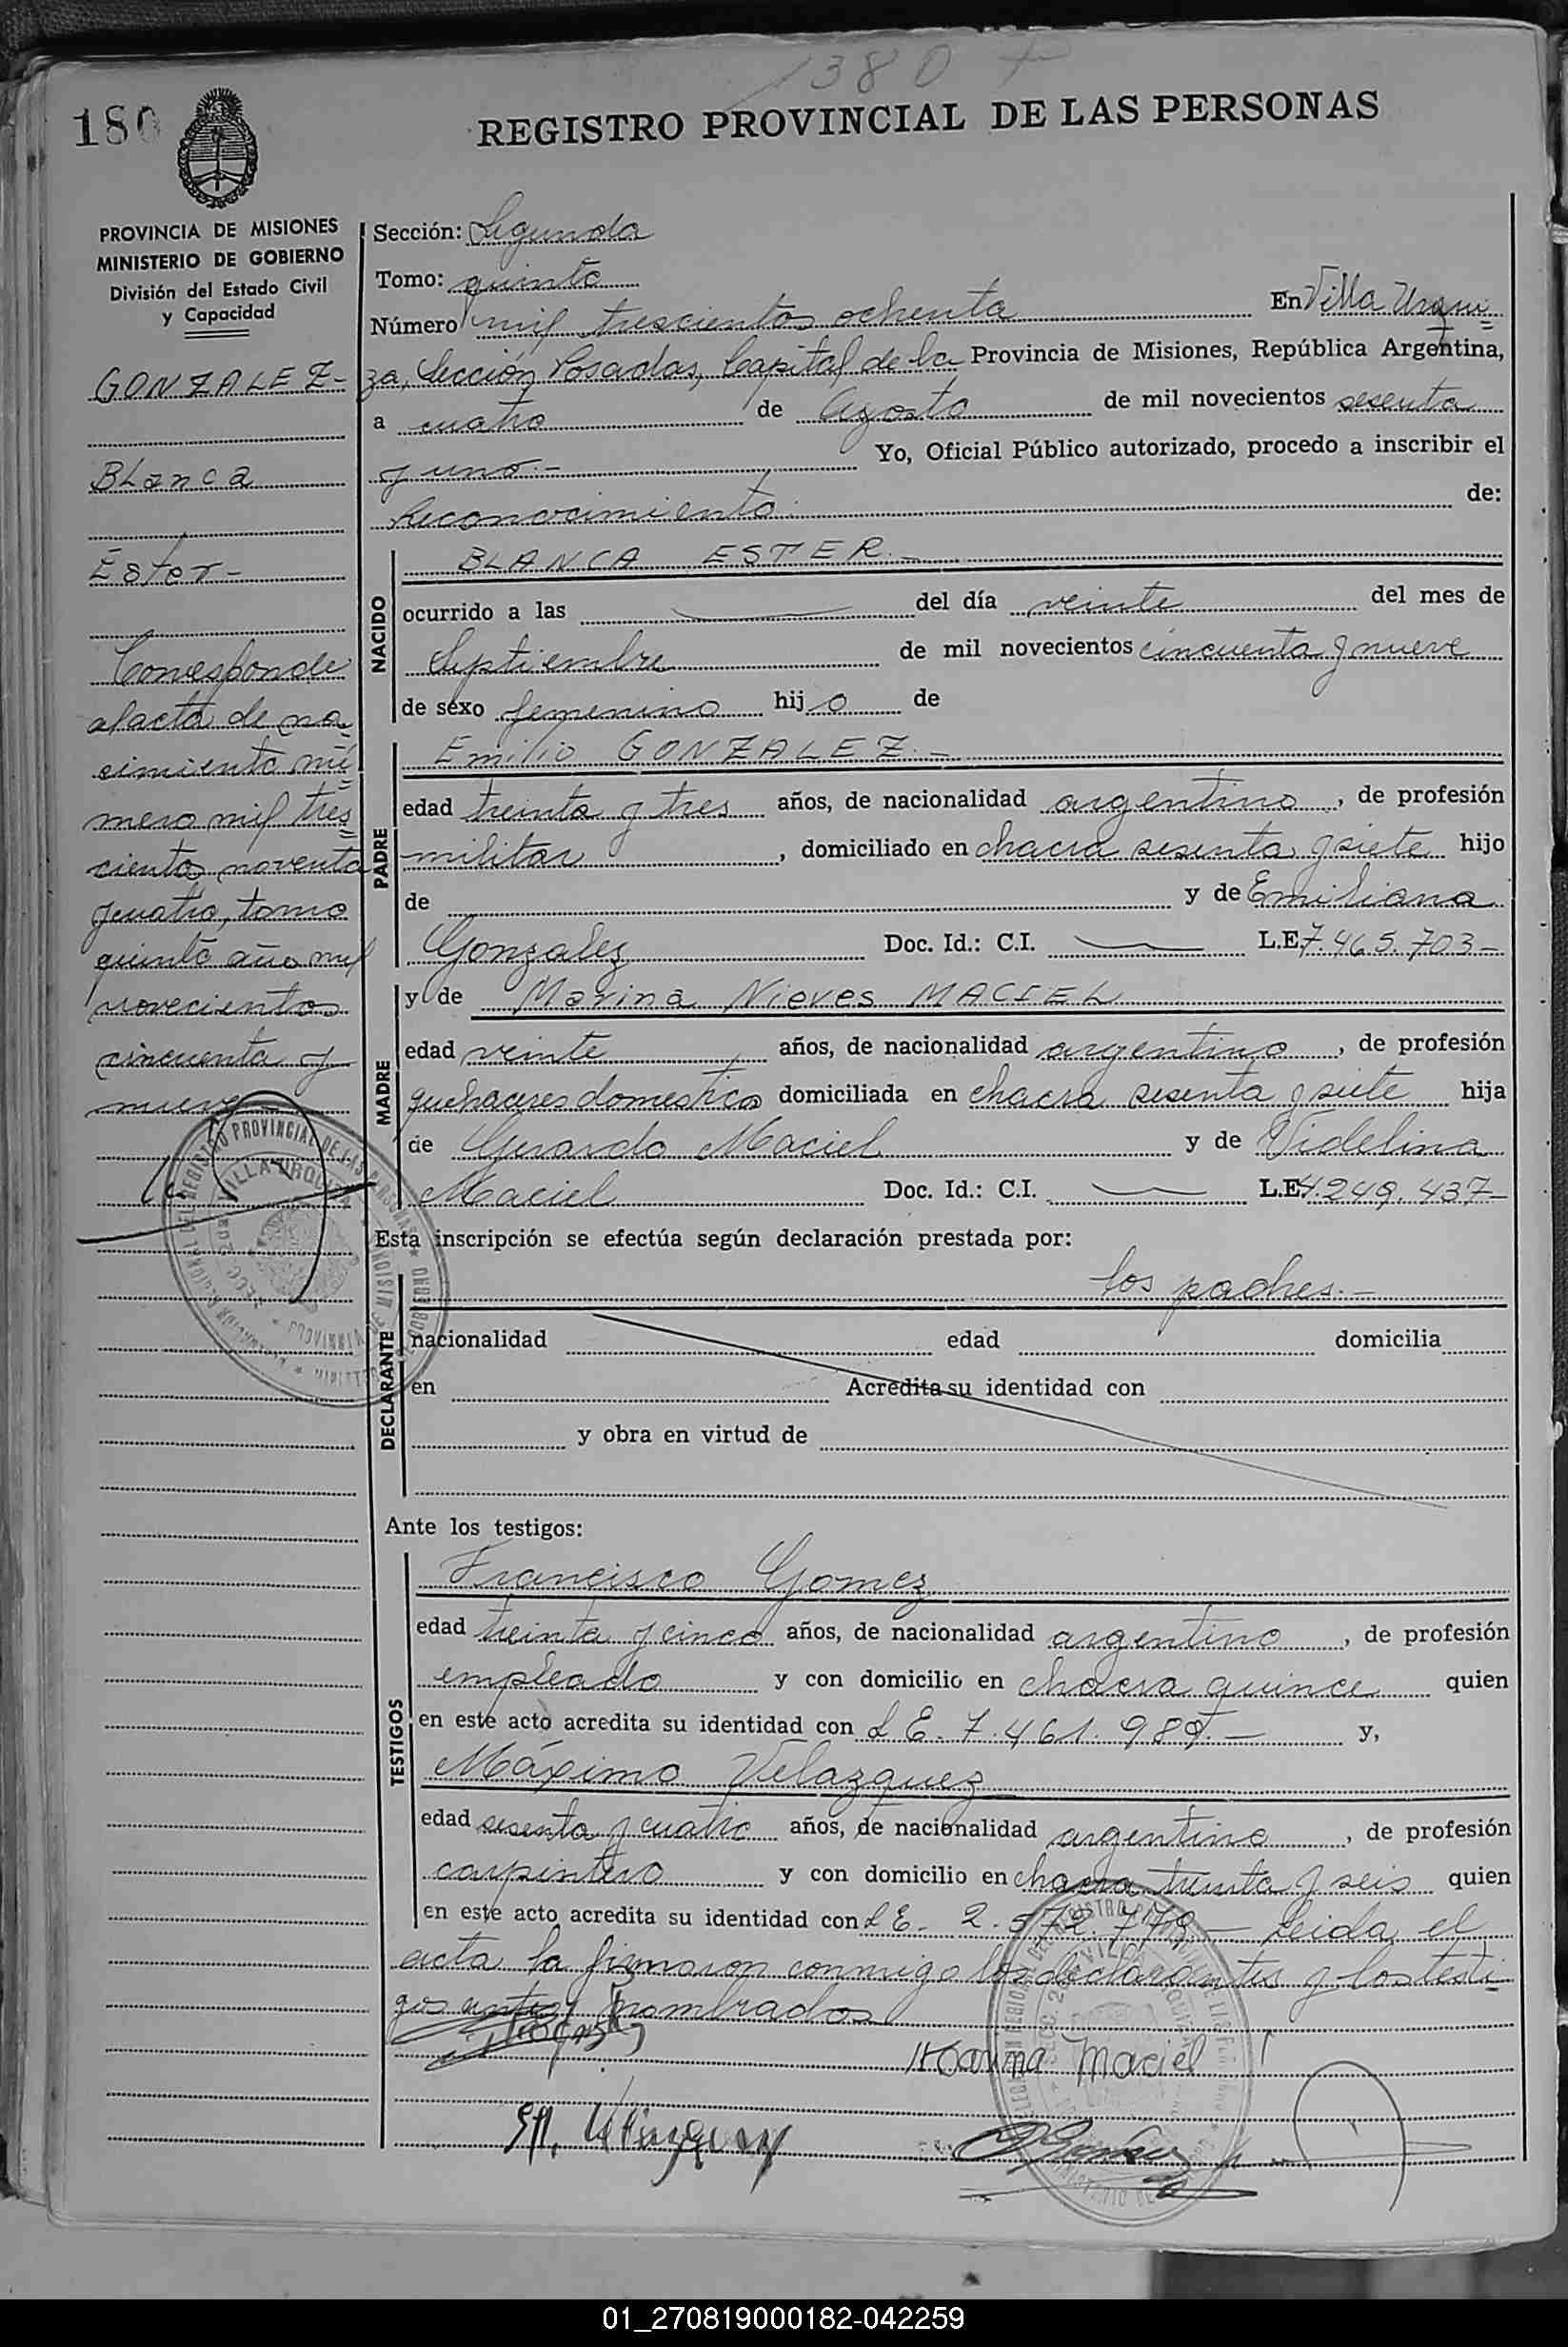 1380
180
REGISTRO PROVINCIAL DE LAS PERSONAS
PROVINCIA DE MISIONES
MINISTERIO DE GOBIERNO
División del Estado Civil
y Capacidad
GONZALEZ-
Blanca
Ester-
Corresponde
al acta de na
cimiento nú
mero mil tres
cientos noventa
y cuatro, tomo
quinto año mil
novecientos
cincuenta y
nueve
Sección: Segunda
Tomo: quinto
Número mil trescientos ochenta En Villa Urqui
za, Sección Posadas, Capital de la Provincia de Misiones, República Argentina,
a cuatro de Agosto de mil novecientos sesenta
y uno.- Yo, Oficial Público autorizado, procedo a inscribir el
Reconocimiento de:
NACIDO
BLANCA ESTER.-
ocurrido a las del día veinte del mes de
Septiembre de mil novecientos cincuenta y nueve
de sexo femenino hijo de
PADRE
Emilio GONZALEZ.-
edad treinta y tres años, de nacionalidad argentino, de profesión
militar, domiciliado en chacra sesenta y siete hijo
de y de Emiliana
Gonzalez Doc. Id.: C.I. L.E 7.465.703-
MADRE
y de Marina Nieves MACIEL
edad veinte años, de nacionalidad argentino, de profesión
quehaceres domesticos domiciliada en chacra sesenta y siete hija
de Gerardo Maciel y de Videlina
Maciel Doc. Id.: C.I. L.E 4.249.437-
Esta inscripción se efectúa según declaración prestada por:
los padres.-
DECLARANTE
nacionalidad edad domicilia
en Acredita su identidad con
y obra en virtud de
Ante los testigos:
TESTIGOS
Francisco Gomez
edad treinta y cinco años, de nacionalidad argentino, de profesión
empleado y con domicilio en chacra quince quien
en este acto acredita su identidad con L E. 7.461.989.- y,
Máximo Velazquez
edad sesenta y cuatro años, de nacionalidad argentino, de profesión
carpintero y con domicilio en chacra treinta y seis quien
en este acto acredita su identidad con L E. 2.572.779- Leida el
acta la firmaron conmigo los declarantes y los testi
gos antes nombrados
Marina Maciel
REGISTRO PROVINCIAL DE LAS PERSONAS
VILLA URQUIZA
01_270819000182-042259